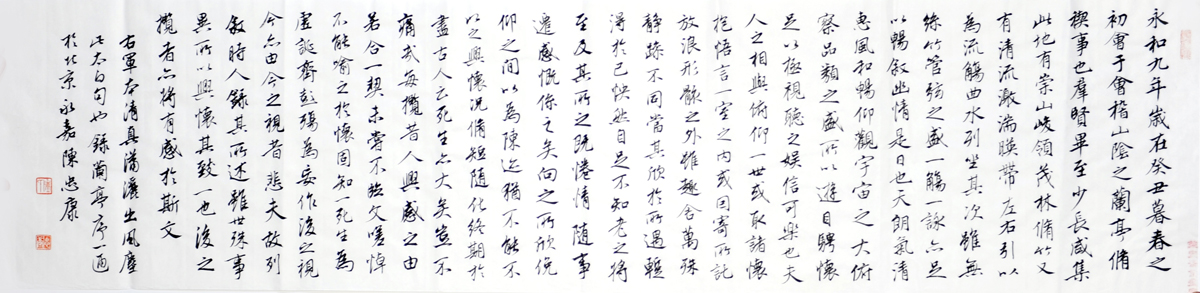 永和九年歲在癸丑暮春之
初會于會稽山陰之蘭亭脩
禊事也群賢畢至少長咸集
此地有崇山峻領茂林脩竹又
有清流激湍暎帶左右引以
為流觴曲水列坐其次雖無
絲竹管弦之盛一觴一詠亦足
以暢敘幽情是日也天朗氣清
惠風和暢仰觀宇宙之大俯
察品類之盛所以遊目騁懷
足以極視聽之娛信可樂也夫
人之相與俯仰一世或取諸懷
抱悟言一室之內或因寄所託
放浪形骸之外雖趣舍萬殊
靜躁不同當其欣於所遇蹔
得於己怏然自足不知老之將
至及其所之既惓情隨事
遷感慨係之矣向之所欣俛
仰之間以為陳迹猶不能不
以之興懷況脩短隨化終期於
盡古人云死生亦大矣豈不
痛哉每攬昔人興感之由
若合一契未嘗不臨文嗟悼
不能喻之於懷固知一死生為
虛誕齊彭殤為妄作後之視
今亦由今之視昔悲夫故列
敘時人錄其所述雖世殊事
異所以興懷其致一也後之
攬者亦將有感於斯文
右軍本清真瀟灑出風塵
此太白句也錄蘭亭序一通
於北京永嘉陳忠康